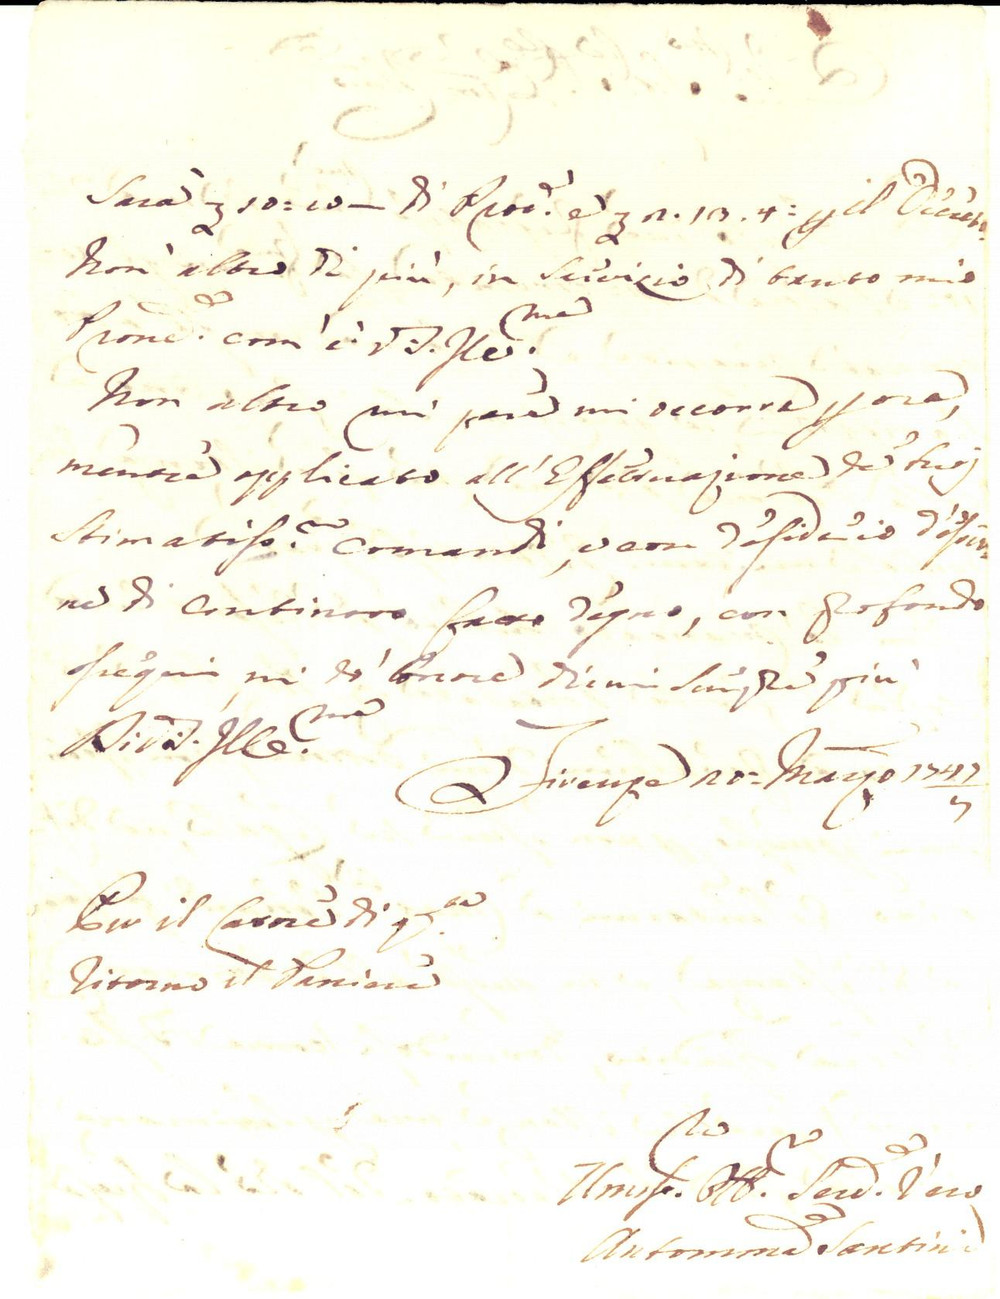 Sarà 10=10— di e 2.13.4= p il
Non altro di più, in Servizio di tanto mio
Prone. com'è V.S. Ill.ma
Non altro mi pare mi occorra p ora,
mentre applicato all'Effettuazione de suoi
Stimatiss.i Comandi, e con desiderio d'esser
ne di continovo fatto degno, con profondo
ossequio mi do l'onore dirmi sempre più
Di V.S. Ill.ma
Firenze 20= Marzo 1747
Per il Latore di q.sta
ritorno il Paniere
Umiss.o Obb.o Serv.e Vero
Antonio Santini